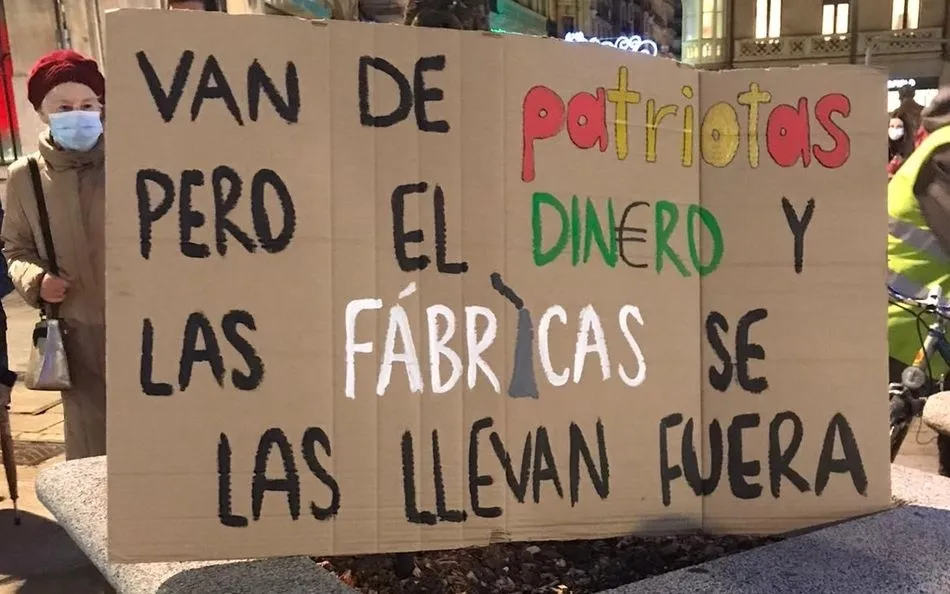 VAN DE patriotas
PERO EL DIN€RO Y
LAS FÁBRICAS SE
LAS LLEVAN FUERA